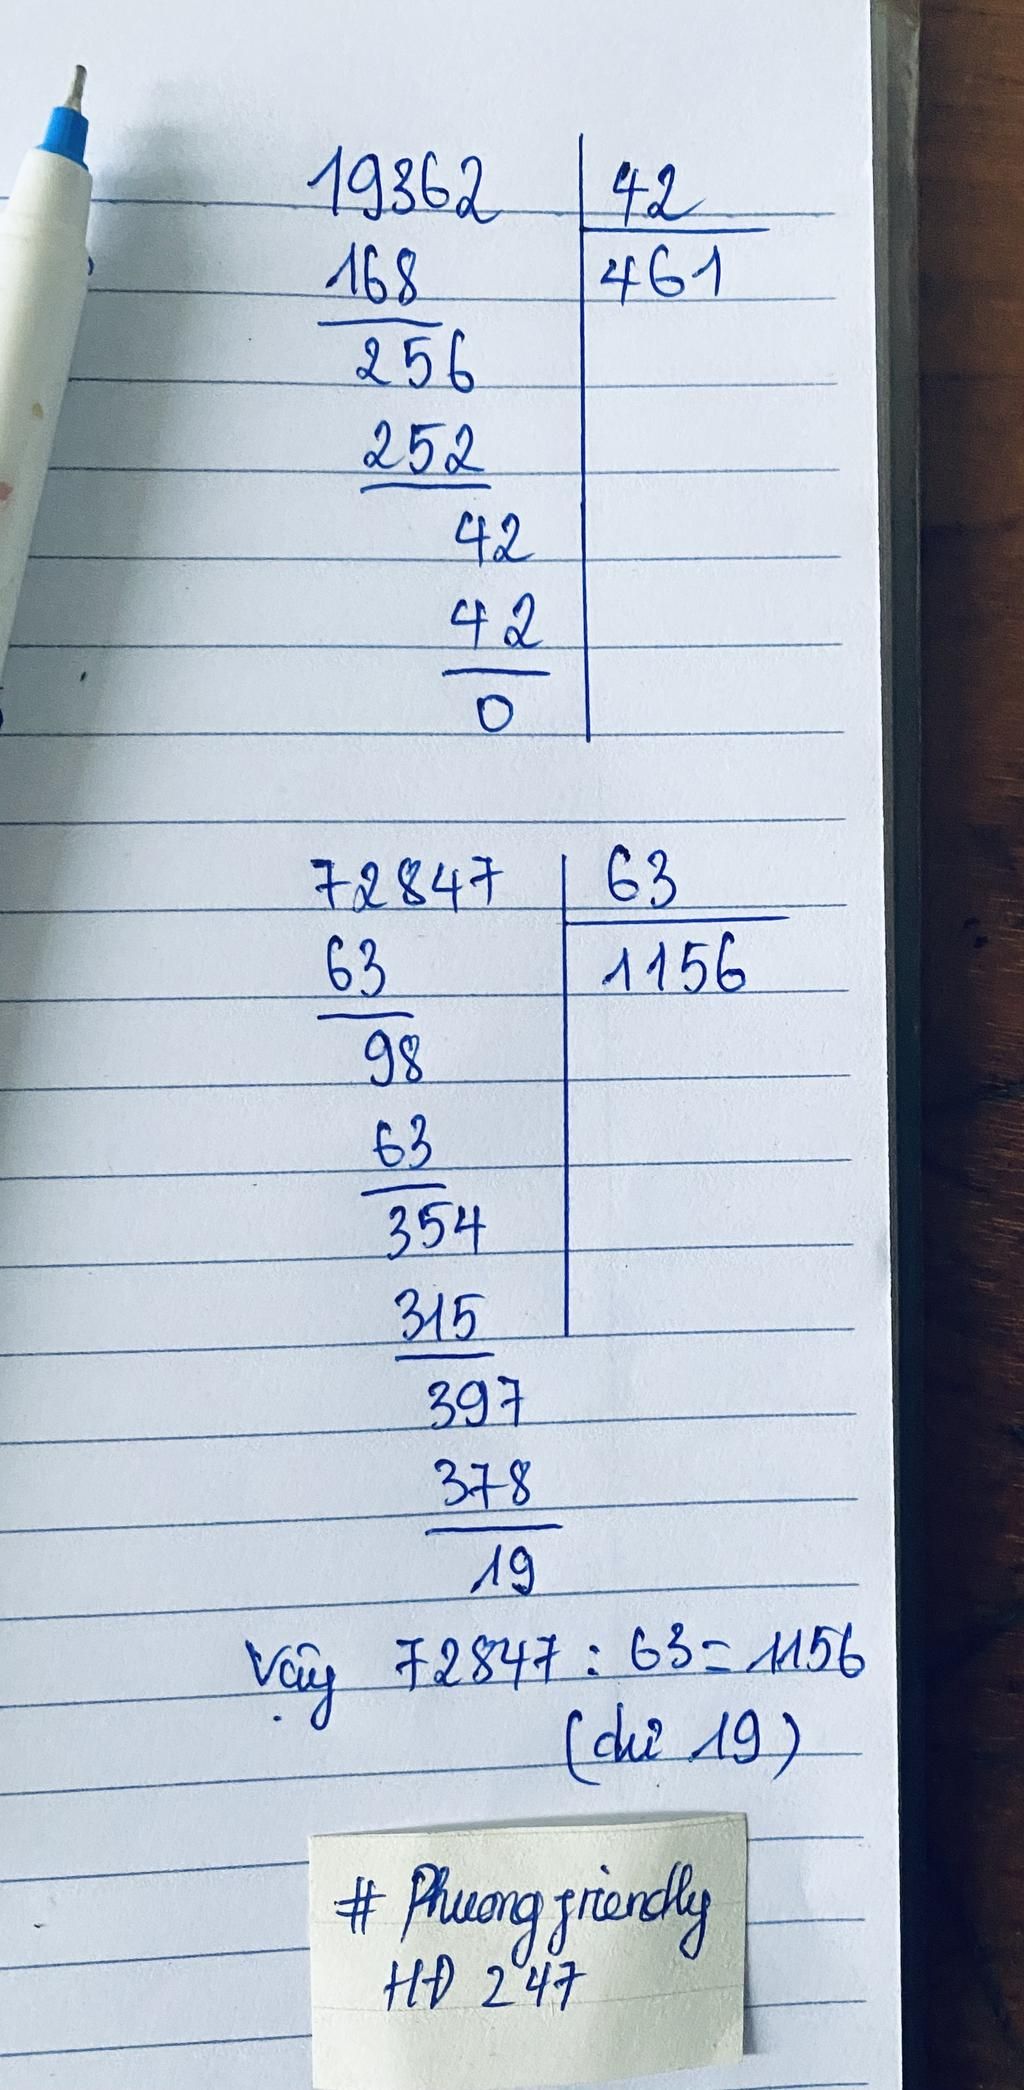 19362 42
168 461
256
252
42
42
0
72847 63
63 1156
98
63
354
315
397
378
19
Vậy 72847 : 63 = 1156
(dư 19)
# Phuong friendly
HĐ 247